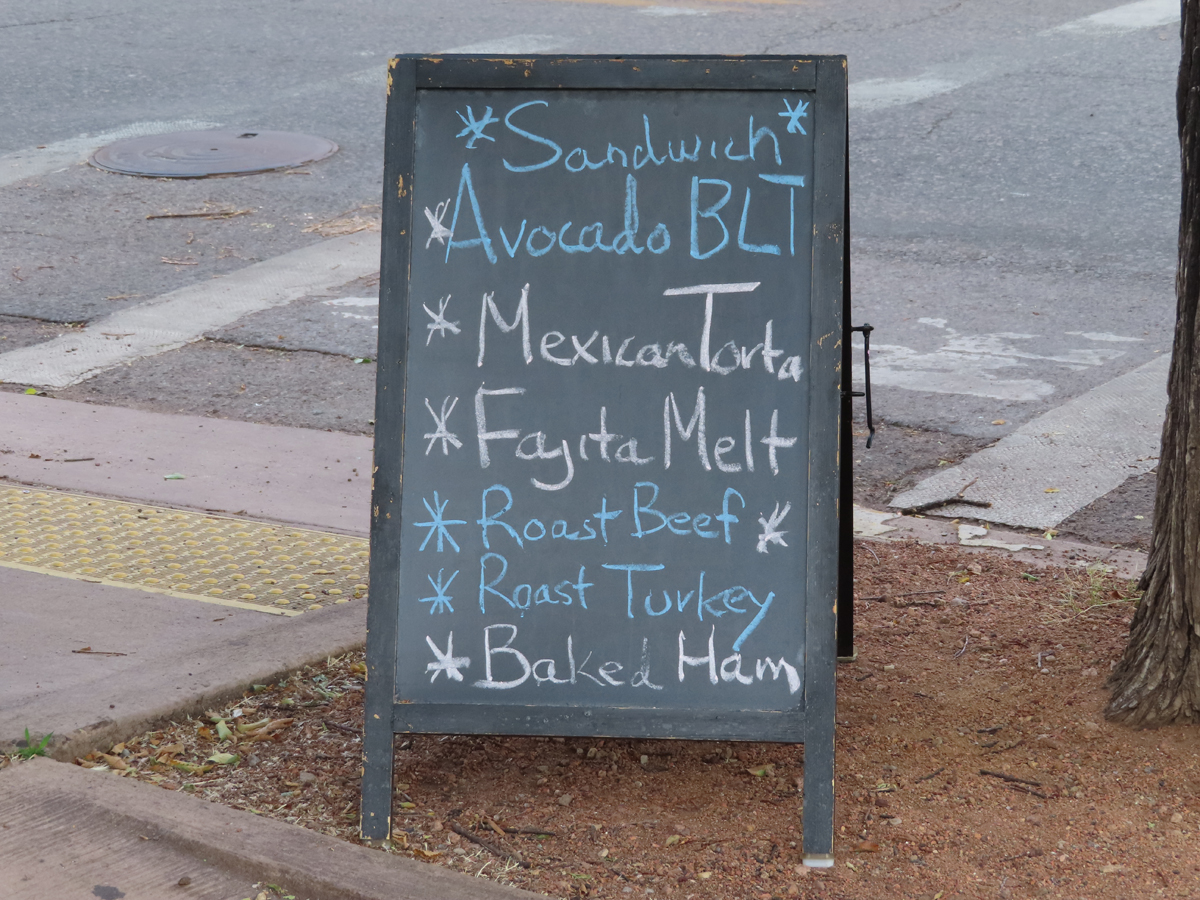 * Sandwich *
* Avocado BLT
* Mexican Torta
* Fajita Melt
* Roast Beef *
* Roast Turkey
* Baked Ham